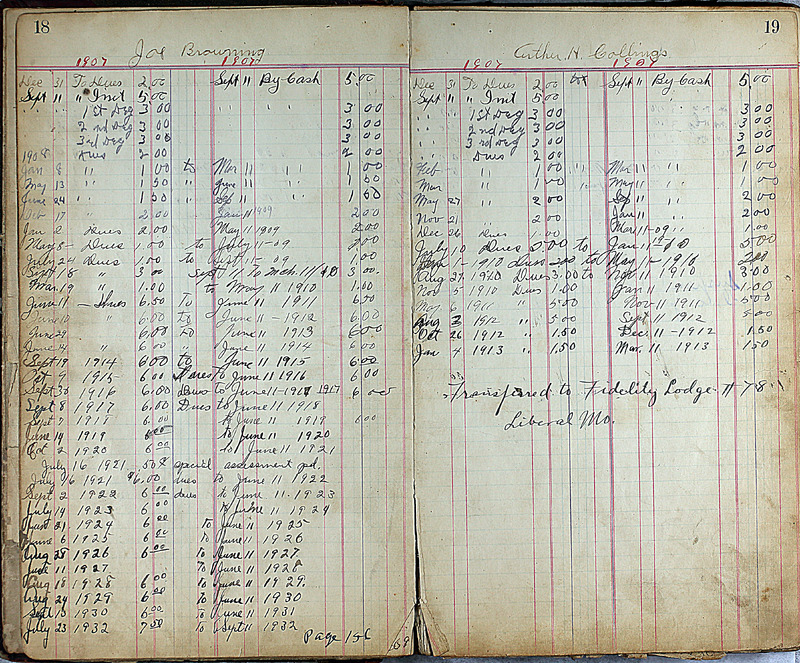 18
Joe Browning
1907 1907
Dec 31 To Dues 2.00 Sept 11 By Cash 5.00
Sept 11 " Inst 5.00
" " 1st Deg 3 00 " " " " 3 00
" " 2nd Deg 3 00 3 00
3rd Deg 3 00 3 00
1908 Dues 2 00 2 00
Jan 8 " 1 00 to Mar 11 " " 1 00
May 13 " 1 50 " June 11 " " 1 50
June 24 " 1 50 " " " 1 50
17 " 2.00 Jan 11 1909 2.00
Dues 2.00 May 11 1909 2.00
Dues 1.00 to July 11-09
July 24 Dues 1.00 to Sept 11-09 1.00
Sept 18 " 3 00 Sept 11 To Mch. 11/10 3 00
Mar 19 " 1.00 to May 11 1910 1.00
June 11 - Dues 6.50 To June 11 1911
June 10 " 6.00 to June 11-1912 6.00
June 29 6.00 to June 11 1913 6 00
June 24 " 6 00 " June 11 1914 6 00
Sept 19 1914 6 00 to June 11 1915 6 00
Oct 1915 6.00 Dues to June 11 1916 6 00
Sept 30 1916 6.00 Dues to June 11 1917
Sept 8 1917 6.00 Dues to June 11 1918
Sept 7 1918 6 00 to June 11 1919 6 00
June 14 1919 6 00 to June 11 1920
Oct 2 1920 6 00 to June 11 1921
July 16 1921 .50 special assessment pd.
July 16 1921 $6.00 dues to June 11 1922
Sept 2 1922 6 00 dues to June 11. 1923
July 14 1923 6 00 to June 11 1924
21 1924 6 00 To June 11 1925
June 6 1925 6 00 To June 11 1926
Aug 28 1926 6 00 To June 11 1927
June 11 1927 To June 11 1928
Aug 18 1928 6 00 To June 11 1929.
Aug 24 1929 6 00 To June 11 1930
Sept 13 1930 6 00 To June 11 1931
July 23 1932 7 50 To Sept 11 1932
Page 156
19
Arthur H. Collings
1907 1907
Dec 31 To Dues 2 00 Sept 11 By Cash 5.00
Sept 11 " Inst 5.00
" " 1st Deg 3 00 3 00
" " 2nd Deg 3 00 3 00
3rd Deg 3 00 3 00
Dues 2 00 2 00
Feb " 1 00 Mar 11 " 1 00
Mar " 1 00 May 11 " 1 00
May 27 " 2 00 Sep 11 " 2 00
Nov 21 " 2 00 Jan 11 " 2 00
Dec 26 Dues 1.00 Mar 11-09 1.00
July 10 Dues 5.00 to Jan 11-10 5.00
1-1910 Dues to May 11-1910
Aug 27 1910 Dues 3.00 to Nov 11 1910 3.00
Nov 5 1910 Dues 1.00 Jan 11 1911 1.00
May 6 1911 5.00 Nov 11 1911 5.00
Aug 3 1912 " 5.00 Sept 11 1912 5 00
Oct 26 1912 " 1.50 Dec 11-1912 1.50
Jan 4 1913 " 1.50 Mar. 11 1913 1.50
Transferred to Fidelity Lodge # 78
Liberal Mo.